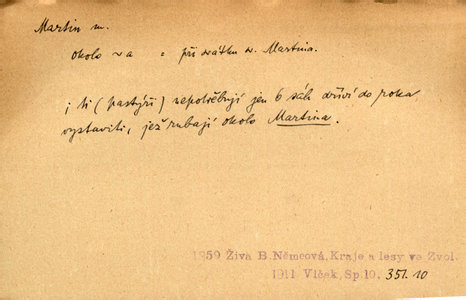 Martin m.
okolo ~a = při svátku sv. Martina.
; ti (pastýři) nepotřebují jen 6 sáh dříví do roka
vystaviti, jež rubají okolo Martina.
1859 Živa B.Němcová, Kraje a lesy ve Zvol.
1911 Vlček, Sp.10, 351.10